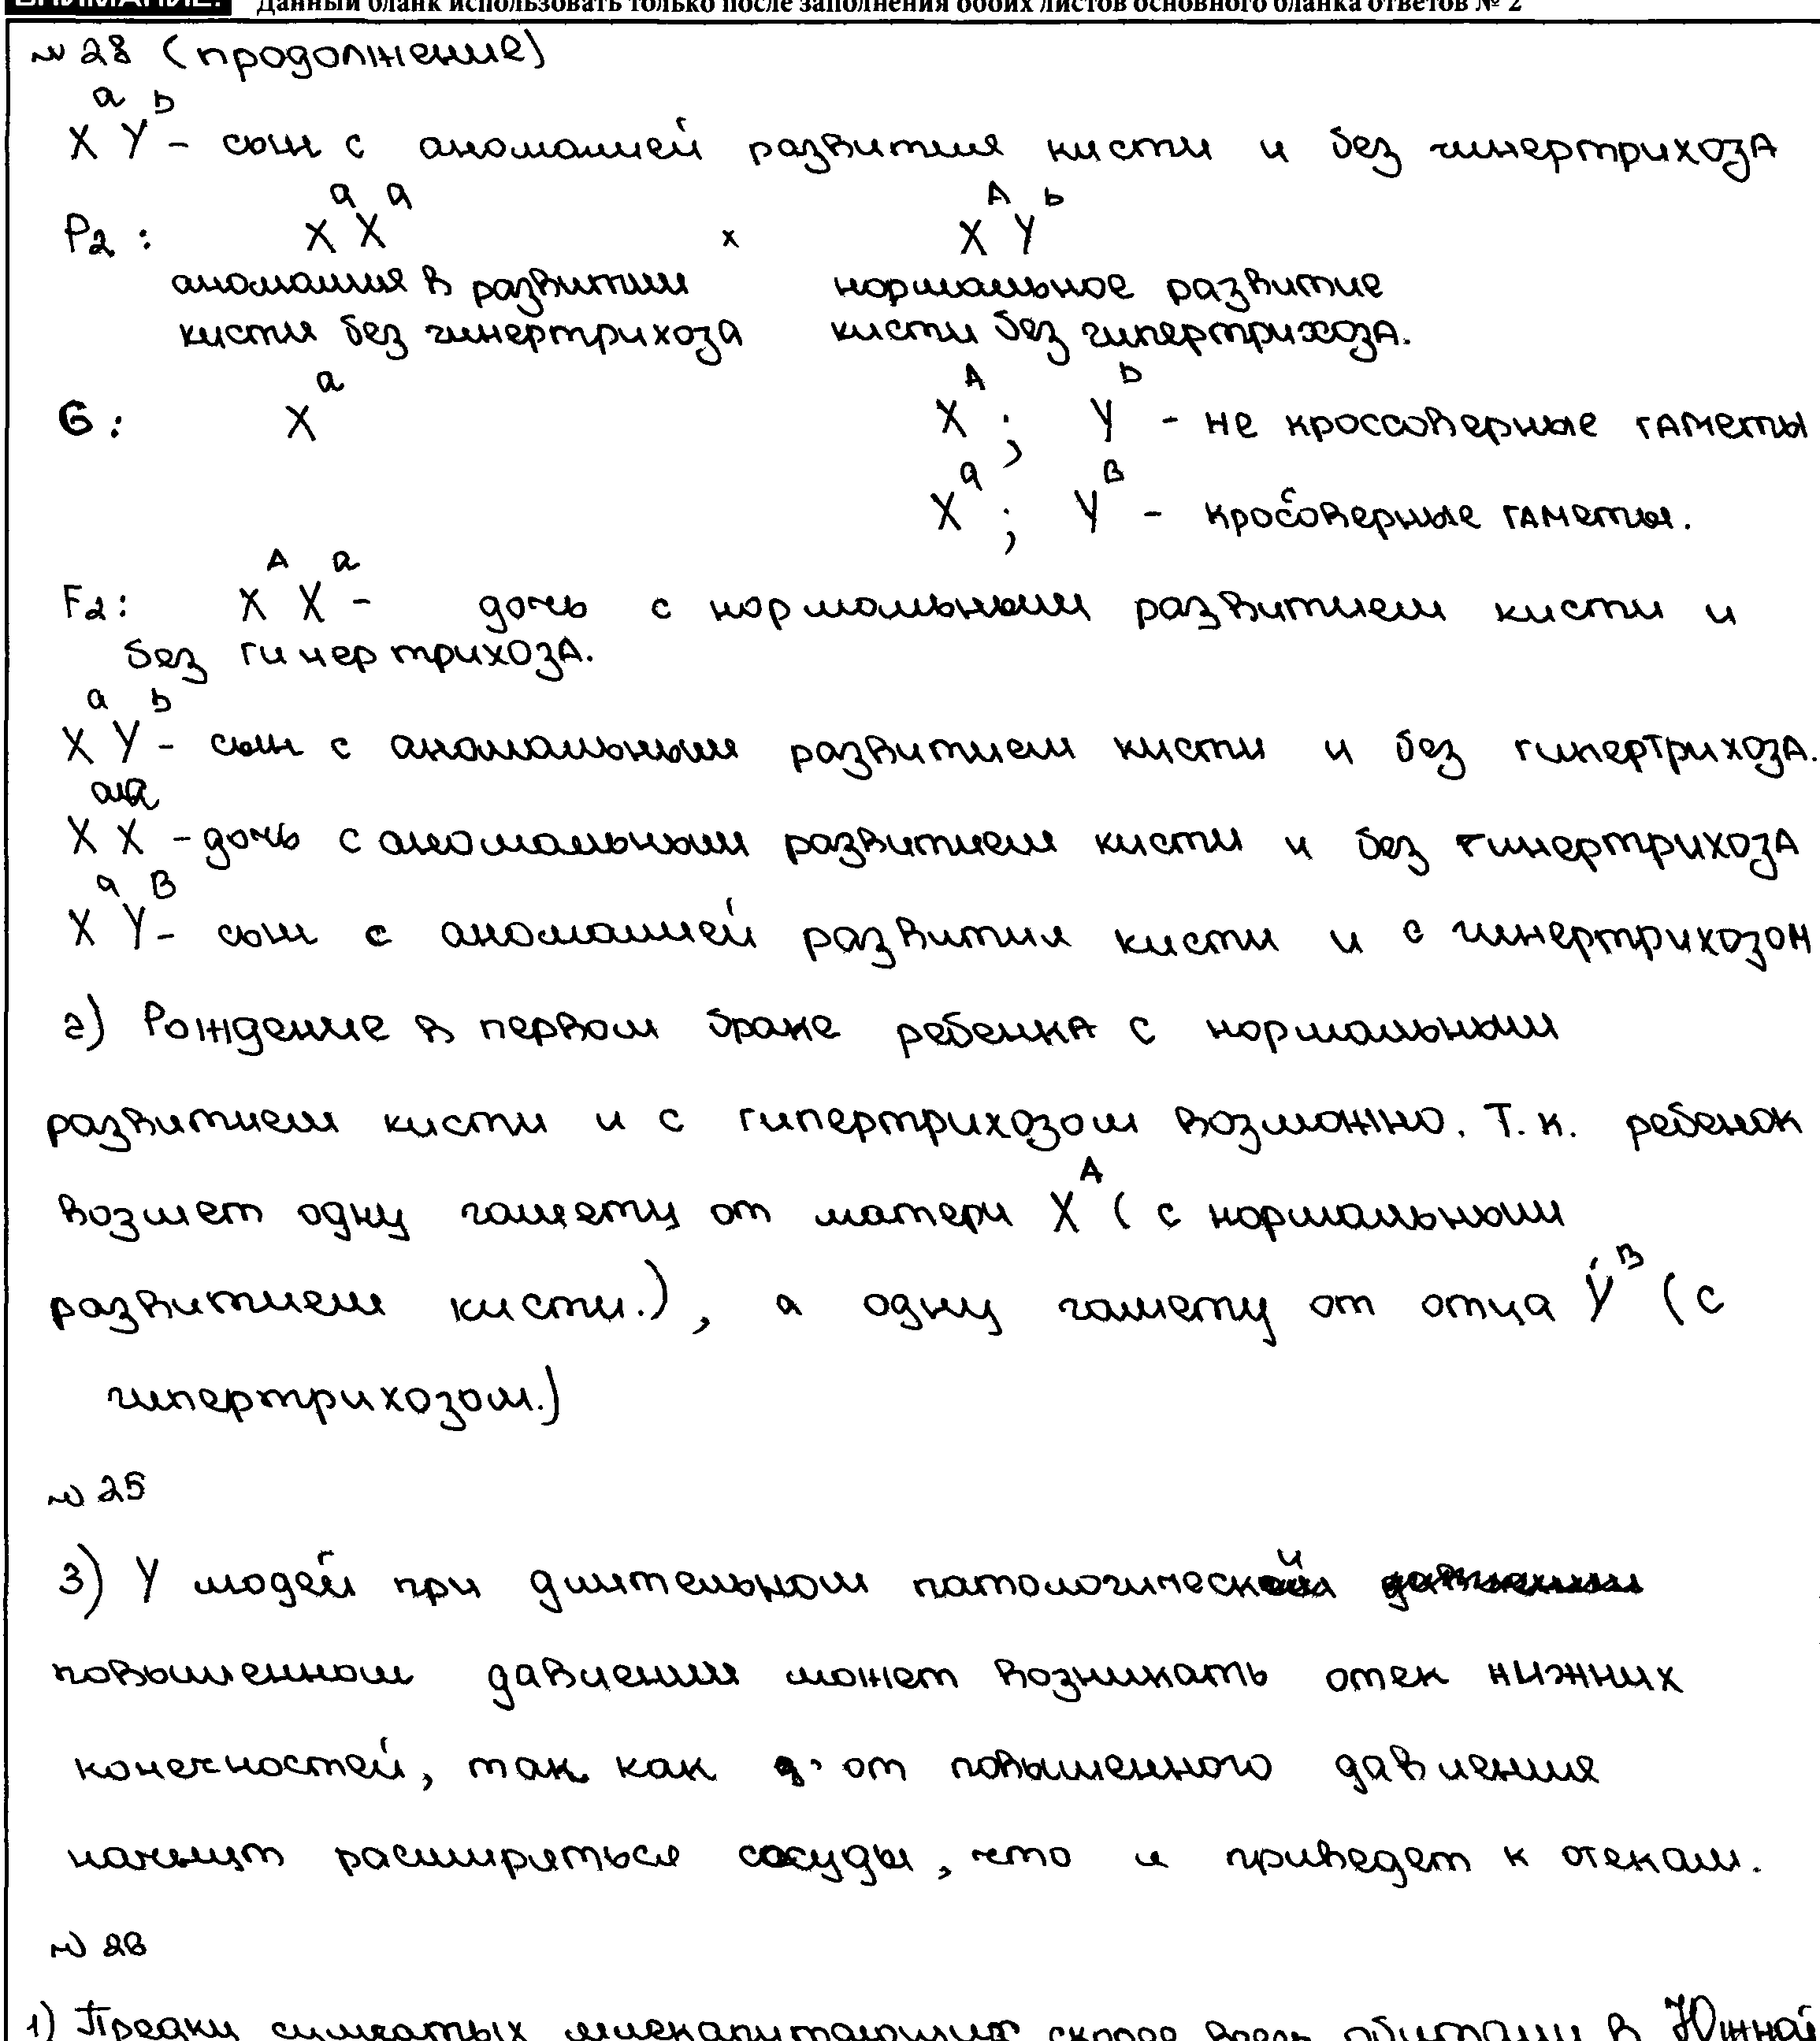 ВНИМАНИЕ! Данный бланк использовать только после заполнения обоих листов основного бланка ответов № 2
№ 28 (продолжение)
X^a Y^b - сын с аномалией развития кисти и без гипертрихоза
P2 : X^a X^a x X^A Y^b
аномалия в развитии нормальное развитие
кисти без гипертрихоза кисти без гипертрихоза.
G : X^a X^A ; Y^b - не кроссоверные гаметы
X^a ; Y^B - кроссоверные гаметы.
F2 : X^A X^a - дочь с нормальным развитием кисти и
без гипертрихоза.
X^a Y^b - сын с аномальным развитием кисти и без гипертрихоза.
X^a X^a - дочь с аномальным развитием кисти и без гипертрихоза
X^a Y^B - сын с аномалией развития кисти и с гипертрихозом
2) Рождение в первом браке ребенка с нормальным
развитием кисти и с гипертрихозом возможно. Т.к. ребенок
возмет одну гамету от матери X^A ( с нормальным
развитием кисти.) , а одну гамету от отца Y^B (с
гипертрихозом.)
№ 25
3) У людей при длительном патологической
повышенном давлении может возникать отек нижних
конечностей, так как от повышенного давления
начнут расширяться сосуды, что и приведет к отекам.
№ 26
1) Предки сумчатых млекапитающих скорее всего обитали в Южной